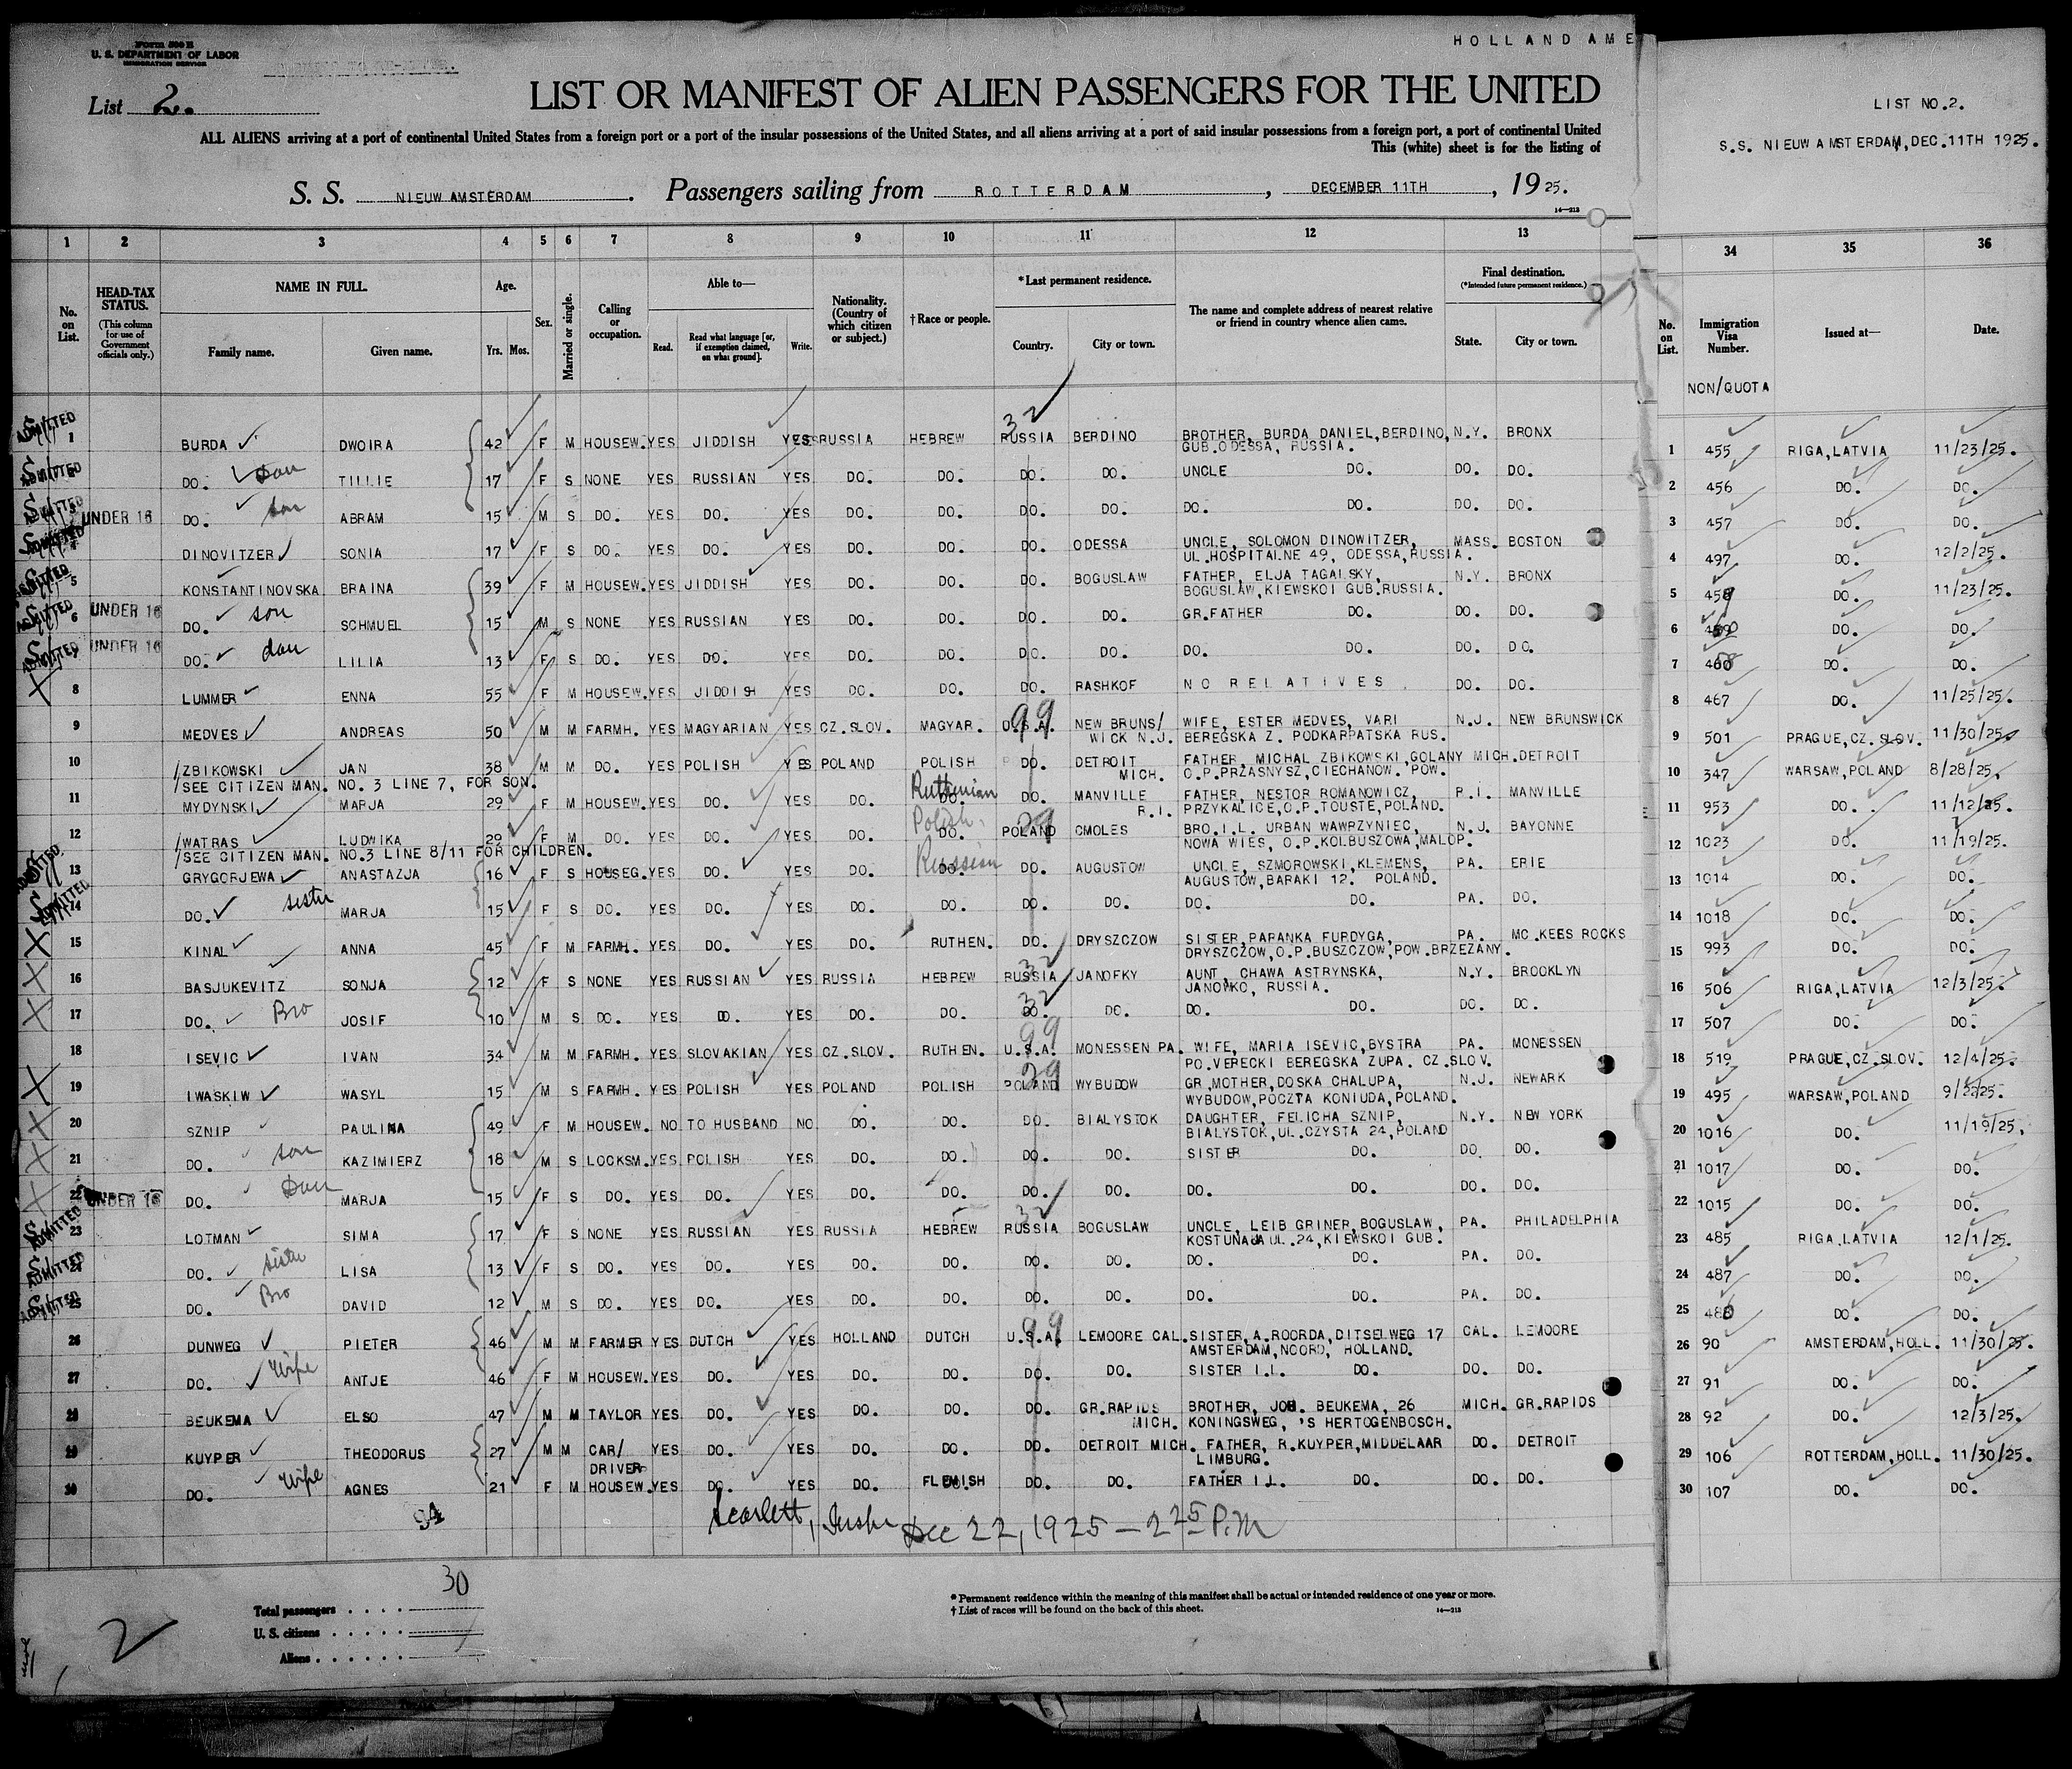 Form 500 B
U. S. DEPARTMENT OF LABOR
IMMIGRATION SERVICE
HOLLAND AME
List 2.
LIST OR MANIFEST OF ALIEN PASSENGERS FOR THE UNITED
ALL ALIENS arriving at a port of continental United States from a foreign port or a port of the insular possessions of the United States, and all aliens arriving at a port of said insular possessions from a foreign port, a port of continental United
This (white) sheet is for the listing of
S. S. NIEUW AMSTERDAM. Passengers sailing from ROTTERDAM, DECEMBER 11TH, 1925.
14—213
LIST NO.2.
S.S. NIEUW AMSTERDAM, DEC.11TH 1925.
1 2 3 4 5 6 7 8 9 10 11 12 13 34 35 36
No. on List.
HEAD-TAX STATUS.
(This column for use of Government officials only.)
NAME IN FULL.
Family name. Given name.
Age.
Yrs. Mos.
Sex.
Married or single.
Calling or occupation.
Able to—
Read. Read what language [or, if exemption claimed, on what ground]. Write.
Nationality. (Country of which citizen or subject.)
†Race or people.
*Last permanent residence.
Country. City or town.
The name and complete address of nearest relative or friend in country whence alien came.
Final destination.
(*Intended future permanent residence.)
State. City or town.
No. on List.
Immigration Visa Number.
Issued at—
Date.
NON/QUOTA
ADMITTED 1 BURDA DWOIRA 42 F M HOUSEW. YES JIDDISH YES RUSSIA HEBREW RUSSIA 32 BERDINO BROTHER, BURDA DANIEL, BERDINO, N.Y. BRONX 1 455 RIGA, LATVIA 11/23/25.
GUB.ODESSA, RUSSIA.
ADMITTED DO. Dau TILLIE 17 F S NONE YES RUSSIAN YES DO. DO. DO. DO. UNCLE DO. DO. DO. 2 456 DO. DO.
ADMITTED UNDER 16 DO. son ABRAM 15 M S DO. YES DO. YES DO. DO. DO. DO. DO. DO. DO. DO. 3 457 DO. DO.
ADMITTED DINOVITZER SONIA 17 F S DO. YES DO. YES DO. DO. DO. ODESSA UNCLE, SOLOMON DINOWITZER, MASS. BOSTON 4 497 DO. 12/2/25.
UL.HOSPITALNE 49, ODESSA, RUSSIA.
ADMITTED 5 KONSTANTINOVSKA BRAINA 39 F M HOUSEW. YES JIDDISH YES DO. DO. DO. BOGUSLAW FATHER, ELJA TAGALSKY, N.Y. BRONX 5 458 DO. 11/23/25.
BOGUSLAW, KIEWSKOI GUB.RUSSIA.
ADMITTED 6 UNDER 16 DO. son SCHMUEL 15 M S NONE YES RUSSIAN YES DO. DO. DO. DO. GR.FATHER DO. DO. DO. 6 DO. DO.
ADMITTED 7 UNDER 16 DO. dau LILIA 13 F S DO. YES DO. YES DO. DO. DO. DO. DO. DO. DO. DO. 7 DO. DO.
8 LUMMER ENNA 55 F M HOUSEW. YES JIDDISH YES DO. DO. DO. RASHKOF NO RELATIVES DO. DO. 8 467 DO. 11/25/25.
9 MEDVES ANDREAS 50 M M FARMH. YES MAGYARIAN YES CZ.SLOV. MAGYAR. U.S.A. 99 NEW BRUNS/ WIFE, ESTER MEDVES, VARI N.J. NEW BRUNSWICK 9 501 PRAGUE, CZ.SLOV. 11/30/25.
WICK N.J. BEREGSKA Z. PODKARPATSKA RUS.
10 ZBIKOWSKI JAN 38 M M DO. YES POLISH YES POLAND POLISH DO. DETROIT FATHER, MICHAL ZBIKOWSKI, GOLANY MICH. DETROIT 10 347 WARSAW, POLAND 8/28/25.
SEE CITIZEN MAN. NO. 3 LINE 7, FOR SON. MICH. O.P.PRZASNYSZ, CIECHANOW. POW.
11 MYDYNSKI MARJA 29 F M HOUSEW. YES DO. YES DO. DO. Ruthenian DO. MANVILLE FATHER, NESTOR ROMANOWICZ, R.I. MANVILLE 11 953 DO. 11/12/25.
R.I. PRZYKALICE, O.P.TOUSTE, POLAND.
12 WATRAS LUDWIKA 29 F M DO. YES DO. YES DO. DO. Polish. POLAND CMOLES BRO.I.L. URBAN WAWRZYNIEC, N.J. BAYONNE 12 1023 DO. 11/19/25.
SEE CITIZEN MAN. NO.3 LINE 8/11 FOR CHILDREN. NOWA WIES, O.P.KOLBUSZOWA, MALOP.
ADMITTED 13 GRYGORJEWA ANASTAZJA 16 F S HOUSEG. YES DO. YES DO. DO. Russian DO. AUGUSTOW UNCLE, SZMOROWSKI, KLEMENS, PA. ERIE 13 1014 DO. DO.
AUGUSTOW, BARAKI 12. POLAND.
ADMITTED 14 DO. sister MARJA 15 F S DO. YES DO. YES DO. DO. DO. DO. DO. DO. PA. DO. 14 1018 DO. DO.
15 KINAL ANNA 45 F M FARMH. YES DO. YES DO. RUTHEN. DO. DRYSZCZOW SISTER, PARANKA FURDYGA, PA. MC.KEES ROCKS 15 993 DO. DO.
DRYSZCZOW, O.P.BUSZCZOW, POW.BRZEZANY.
16 BASJUKEVITZ SONJA 12 F S NONE YES RUSSIAN YES RUSSIA HEBREW RUSSIA 32 JANOFKY AUNT, CHAWA ASTRYNSKA, N.Y. BROOKLYN 16 506 RIGA, LATVIA 12/3/25.
JANOVKO, RUSSIA.
17 DO. Bro JOSIF 10 M S DO. YES DO. YES DO. DO. DO. 32 DO. DO. DO. DO. DO. 17 507 DO. DO.
18 ISEVIC IVAN 34 M M FARMH. YES SLOVAKIAN YES CZ.SLOV. RUTHEN. U.S.A. 99 MONESSEN PA. WIFE, MARIA ISEVIC, BYSTRA PA. MONESSEN 18 519 PRAGUE, CZ.SLOV. 12/4/25.
PO.VERECKI BEREGSKA ZUPA. CZ.SLOV.
19 IWASKIW WASYL 15 M S FARMH. YES POLISH YES POLAND POLISH POLAND 29 WYBUDOW GR.MOTHER, DOSKA CHALUPA, N.J. NEWARK 19 495 WARSAW, POLAND 9/22/25.
WYBUDOW, POCZTA KONIUDA, POLAND.
20 SZNIP PAULINA 49 F M HOUSEW. NO TO HUSBAND NO DO. DO. DO. BIALYSTOK DAUGHTER, FELICHA SZNIP, N.Y. NEW YORK 20 1016 DO. 11/19/25.
BIALYSTOK, UL.CZYSTA 24, POLAND
21 DO. son KAZIMIERZ 18 M S LOCKSM. YES POLISH YES DO. DO. DO. DO. SISTER DO. DO. DO. 21 1017 DO. DO.
22 UNDER 16 DO. Dau MARJA 15 F S DO. YES DO. YES DO. DO. DO. DO. DO. DO. DO. DO. 22 1015 DO. DO.
ADMITTED 23 LOTMAN SIMA 17 F S NONE YES RUSSIAN YES RUSSIA HEBREW RUSSIA 32 BOGUSLAW UNCLE, LEIB GRINER, BOGUSLAW, PA. PHILADELPHIA 23 485 RIGA, LATVIA 12/1/25.
KOSTUNAJA UL.24, KIEWSKOI GUB.
ADMITTED 24 DO. sister LISA 13 F S DO. YES DO. YES DO. DO. DO. DO. DO. DO. PA. DO. 24 487 DO. DO.
ADMITTED 25 DO. Bro DAVID 12 M S DO. YES DO. YES DO. DO. DO. DO. DO. DO. PA. DO. 25 486 DO. DO.
26 DUNWEG PIETER 46 M M FARMER YES DUTCH YES HOLLAND DUTCH U.S.A. 99 LEMOORE CAL. SISTER, A.ROORDA, DITSELWEG 17 CAL. LEMOORE 26 90 AMSTERDAM, HOLL. 11/30/25.
AMSTERDAM, NOORD, HOLLAND.
27 DO. Wife ANTJE 46 F M HOUSEW. YES DO. YES DO. DO. DO. DO. SISTER I.L. DO. DO. DO. 27 91 DO. DO.
28 BEUKEMA ELSO 47 M M TAYLOR YES DO. YES DO. DO. DO. GR.RAPIDS BROTHER, JOH. BEUKEMA, 26 MICH. GR.RAPIDS 28 92 DO. 12/3/25.
MICH. KONINGSWEG, 'S HERTOGENBOSCH.
29 KUYPER THEODORUS 27 M M CAR/ YES DO. YES DO. DO. DO. DETROIT MICH. FATHER, R.KUYPER, MIDDELAAR DO. DETROIT 29 106 ROTTERDAM, HOLL. 11/30/25.
DRIVER LIMBURG.
30 DO. Wife AGNES 21 F M HOUSEW. YES DO. YES DO. FLEMISH DO. DO. FATHER I.L. DO. DO. DO. 30 107 DO. DO.
94 Scarlett, Inspr Dec 22, 1925 — 2 25 P.M
30
Total passengers
U. S. citizens
Aliens
2
* Permanent residence within the meaning of this manifest shall be actual or intended residence of one year or more.
† List of races will be found on the back of this sheet.
14—213